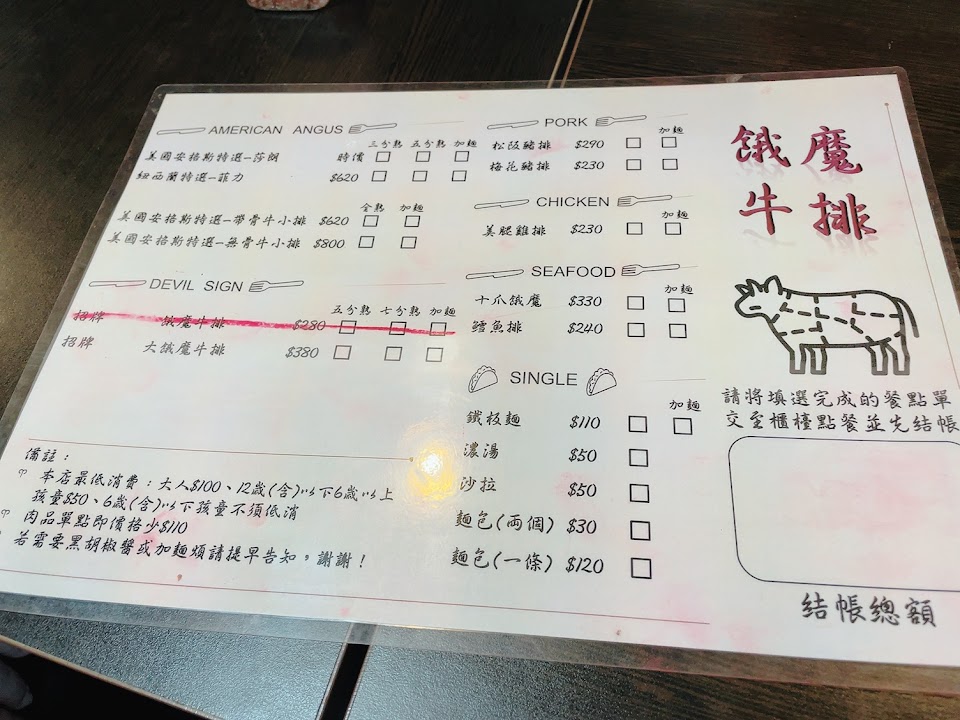 AMERICAN ANGUS
三分熟 五分熟 加麵
美國安格斯特選-莎朗 時價
紐西蘭特選-菲力 $620
全熟 加麵
美國安格斯特選-帶骨牛小排 $620
美國安格斯特選-無骨牛小排 $800
DEVIL SIGN
五分熟 七分熟 加麵
招牌 餓魔牛排 $280
招牌 大餓魔牛排 $380
備註：
本店最低消費：大人$100、12歲(含)以下6歲以上
孩童$50、6歲(含)以下孩童不須低消
肉品單點即價格少$110
若需要黑胡椒醬或加麵煩請提早告知，謝謝！
PORK
加麵
松阪豬排 $290
梅花豬排 $230
CHICKEN
加麵
美腿雞排 $230
SEAFOOD
加麵
十爪餓魔 $330
鱈魚排 $240
SINGLE
加麵
鐵板麵 $110
濃湯 $50
沙拉 $50
麵包(兩個) $30
麵包(一條) $120
餓魔
牛排
請將填選完成的餐點單
交至櫃檯點餐並先結帳
結帳總額